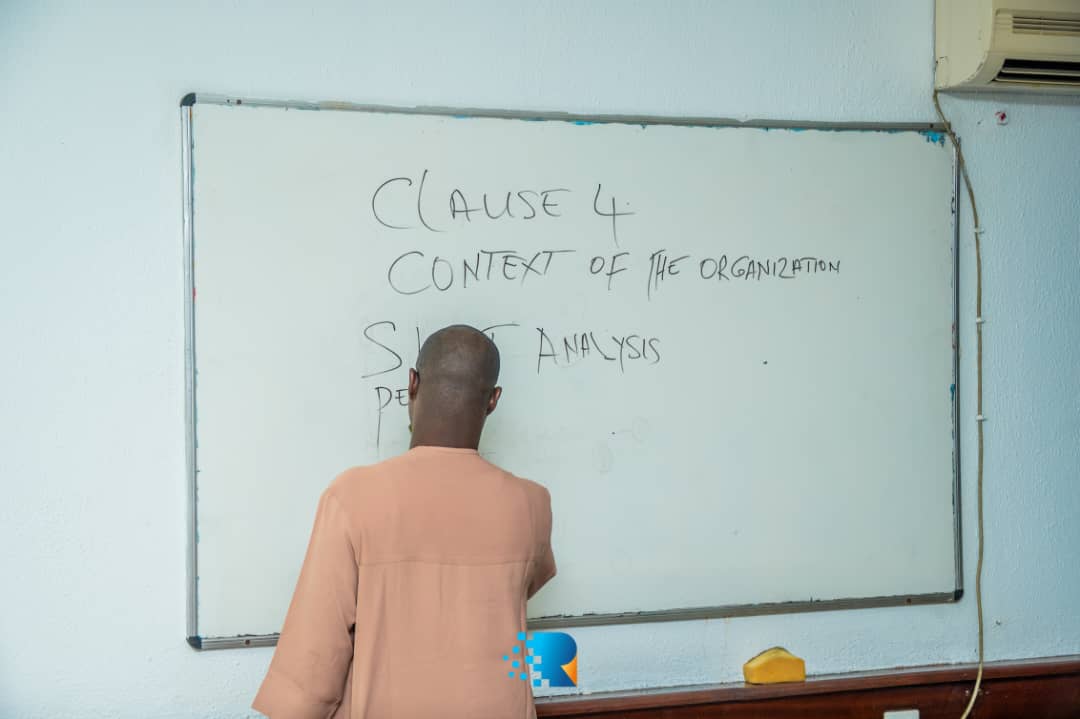 CLAUSE 4
CONTEXT OF THE ORGANIZATION
ANALYSIS